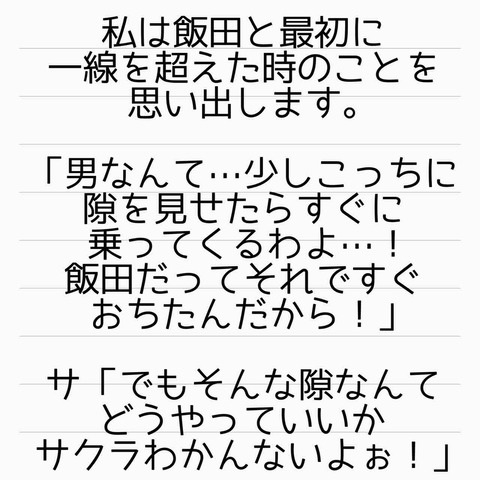 私は飯田と最初に
一線を超えた時のことを
思い出します。
「男なんて…少しこっちに
隙を見せたらすぐに
乗ってくるわよ…！
飯田だってそれですぐ
おちたんだから！」
サ「でもそんな隙なんて
どうやっていいか
サクラわかんないよぉ！」